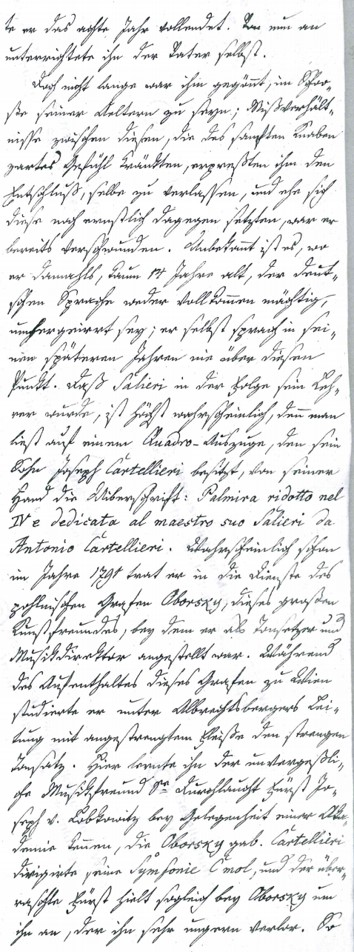 te er das achte Jahr vollendet. Von nun an
unterrichtete ihn der Vater selbst.
Doch nicht lange war ihm gegönnt, im Schoo-
ße seiner Aeltern zu seyn; Mißverhält-
nisse zwischen diesen, die des sanften Knaben
zartes Gefühl kränkten, erpreßten ihm den
Entschluß, selbe zu verlassen, und ehe sich
diese noch ernstlich dagegen setzten, war er
bereits verschwunden. Unbekannt ist es, wo
er damahls, kaum 14 Jahre alt, der deut-
schen Sprache weder vollkommen mächtig,
umhergeirrt sey; er selbst sprach in sei-
nen späteren Jahren nie über diesen
Punkt. Daß Salieri in der Folge sein Leh-
rer wurde, ist höchst wahrscheinlich, denn man
ließt auf einem Quadro-Auszuge, den sein
Sohn Joseph Cartellieri besitzt, von seiner
Hand die Uiberschrift: Palmira ridotto nel
IV e dedicata al maestro suo Salieri da
Antonio Cartellieri. Wahrscheinlich schon
im Jahre 1791 trat er in die Dienste des
pohlnischen Grafen Oborsky, dieses großen
Kunstfreundes, bey dem er als Tonsetzer und
Musikdirektor angestellt war. Während
des Aufenthaltes dieses Grafen zu Wien
studierte er unter Albrechtsbergers Lei-
tung mit angestrengtem Fleiße den strengen
Tonsatz. Hier lernte ihn der unvergeßli-
che Musikfreund Se Durchlaucht Fürst Jo-
seph v. Lobkowitz bey Gelegenheit einer Aka-
demie kennen, die Oborsky gab. Cartellieri
dirigirte seine Symfonie C mol, und der über-
raschte Fürst hielt sogleich bey Oborsky um
ihn an, der ihn sehr ungern verlor. So